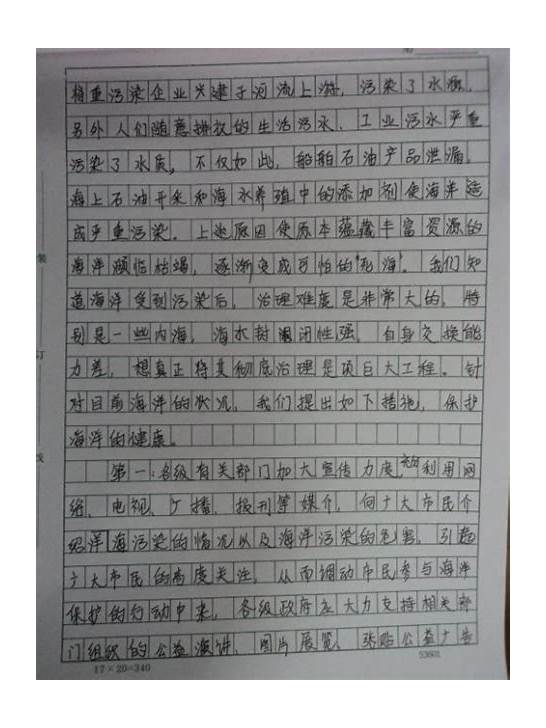 将重污染企业兴建于河流上游，污染了水源，
另外人们随意排放的生活污水、工业污水严重
污染了水质。不仅如此，船舶石油产品泄漏。
海上石油开采和海水养殖中的添加剂使海洋造
成严重污染。上述原因使原本蕴藏丰富资源的
海洋濒临枯竭，逐渐变成可怕的“死海”。我们知
道海洋受到污染后，治理难度是非常大的，特
别是一些内海，海水封闭性强，自身交换能
力差，想真正将其彻底治理是项巨大工程。针
对目前海洋的状况，我们提出如下措施，保护
海洋的健康。
第一：各级有关部门加大宣传力度，充分利用网
络、电视、广播、报刊等媒介，向广大市民介
绍洋海污染的情况以及海洋污染的危害，引起
广大市民的高度关注，从而调动市民参与海洋
保护的行动中来，各级政府应大力支持相关部
门组织的公益演讲、图片展览、张贴公益广告
17×20=340
装
订
线